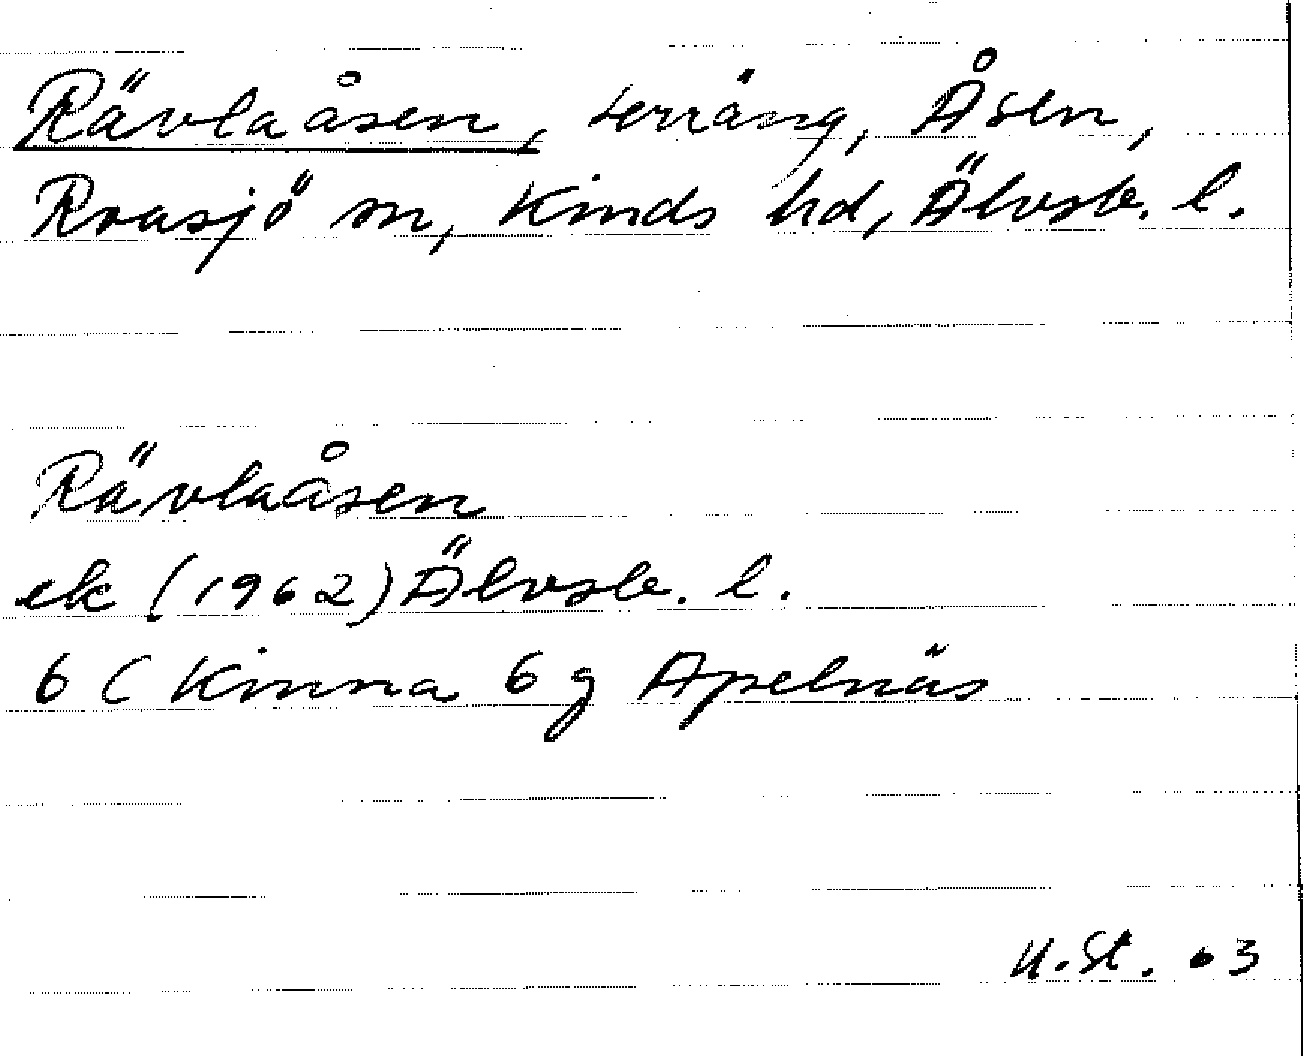 Rävlaåsen, terräng, Åsen,
Roasjö sn, Kinds hd, Älvsb. l.
Rävlaåsen
ek (1962) Älvsb. l.
6 C Kinna 6 g Apelnäs
U.St. 63